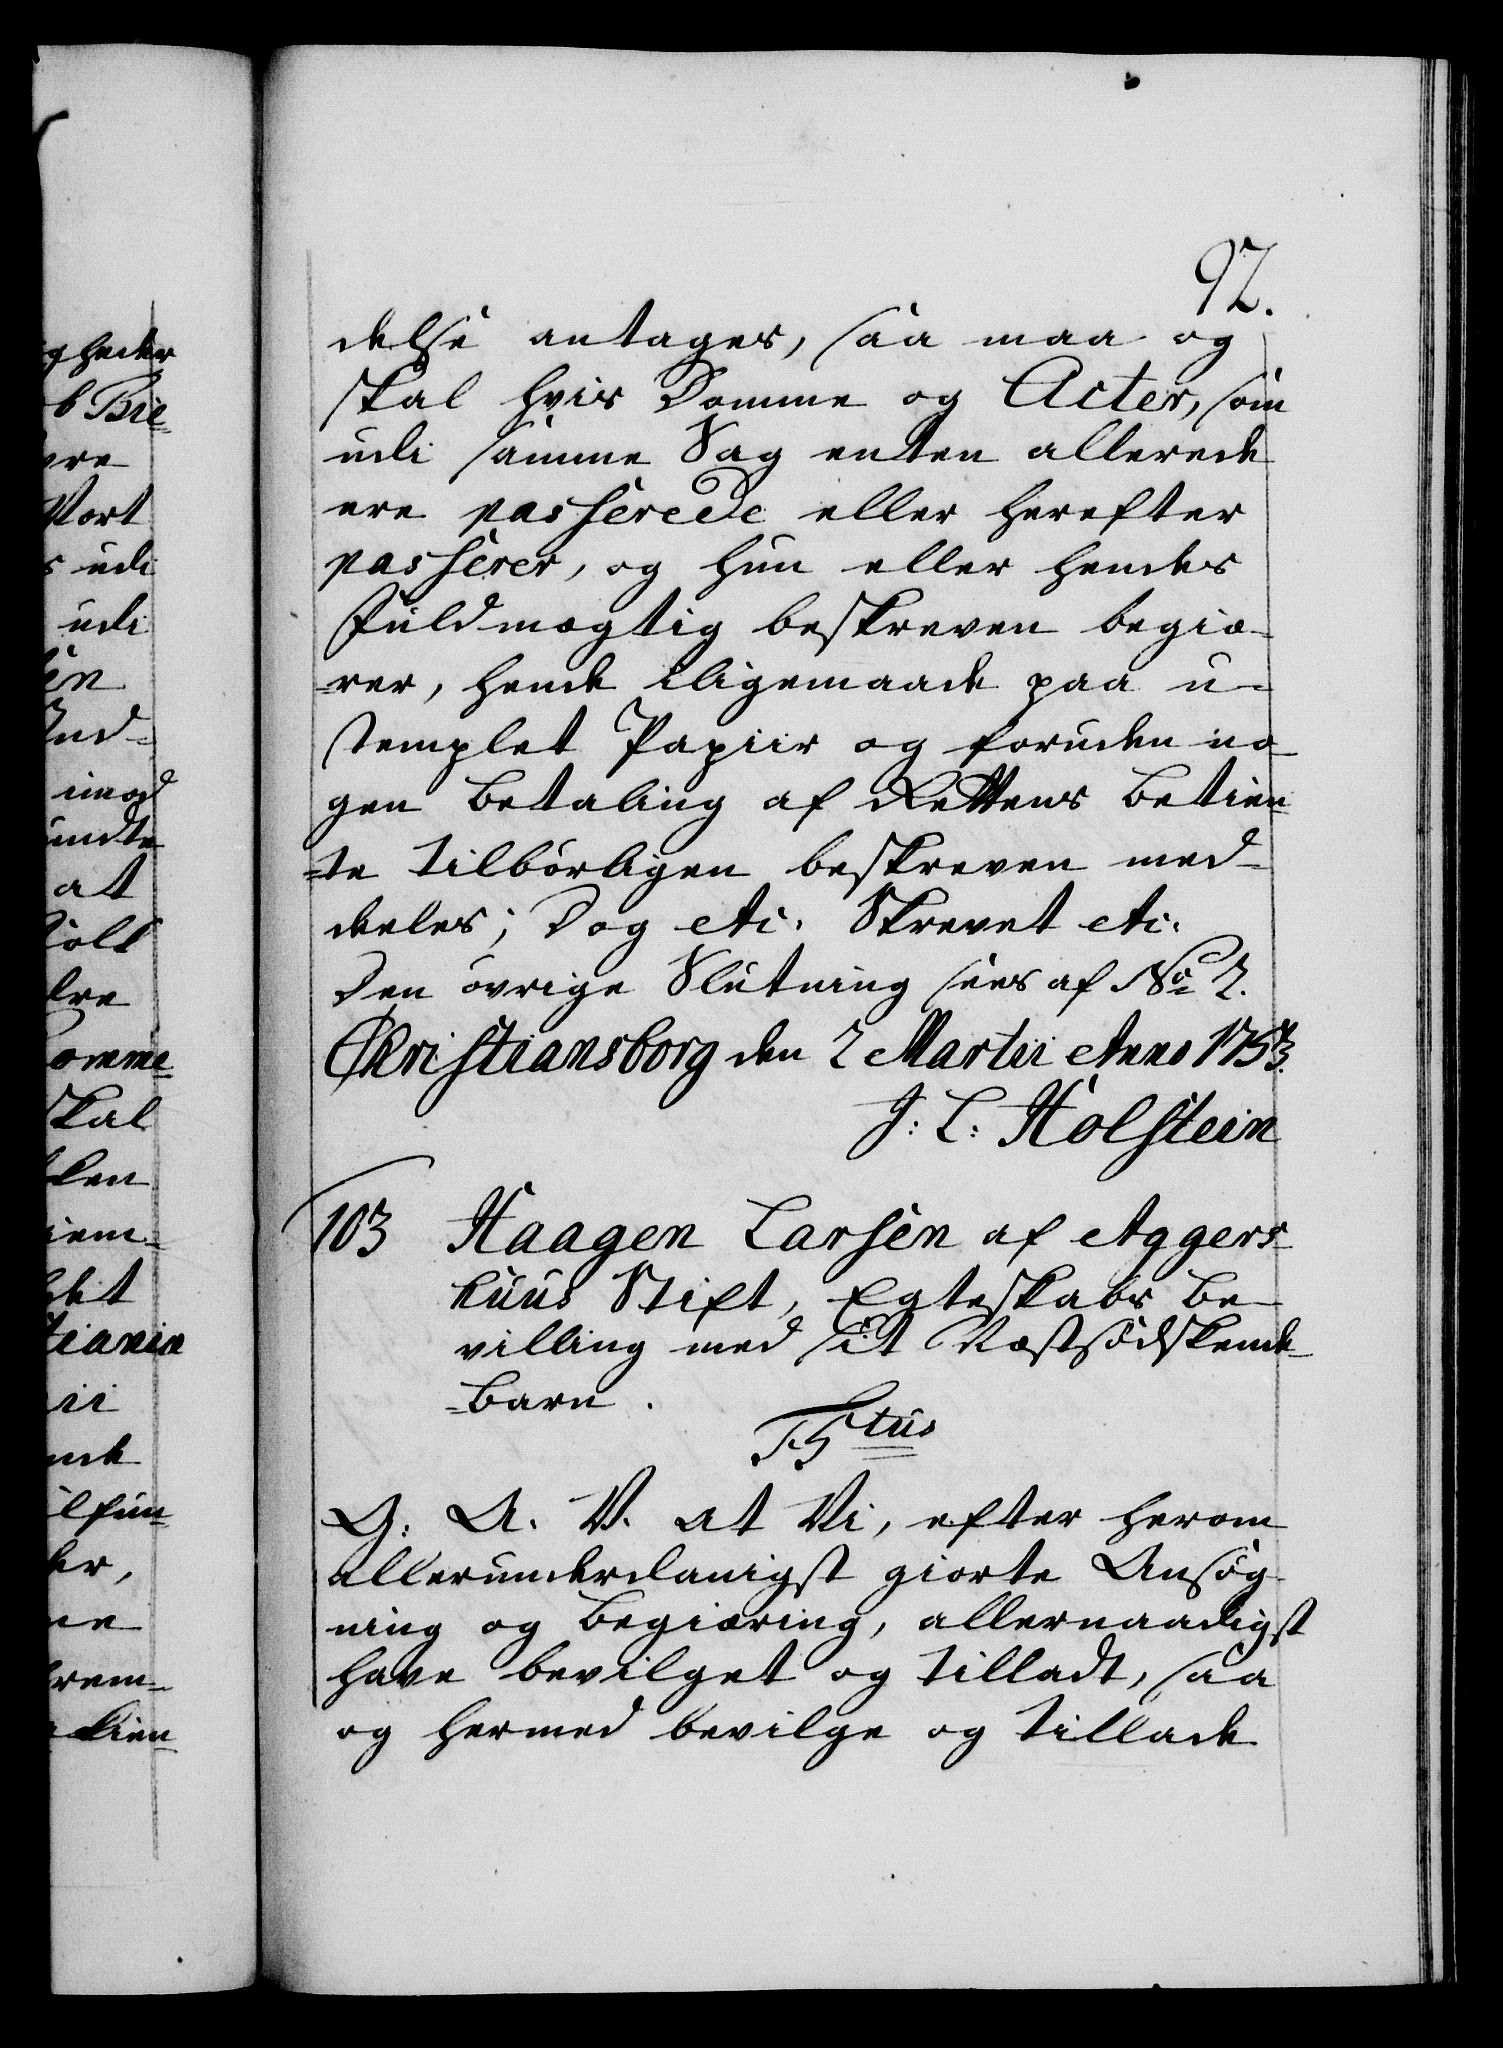 92.
delse antages, saa maa og
skal hvis Domme og Acter, som
udi samme Sag enten allerede
ere passerede eller herefter
passerer, og hun eller hendes
Fuldmægtig beskreven begiæ-
-rer, hende iligemaade paa u-
stemplet Papiir og foruden no-
gen Betaling af Rettens Betien-
-te tilbørligen beskreven med-
deeles; Dog etc. Skrevet etc.
Den øvrige Slutning sees af No 2.
Christiansborg den 2 Martii Anno 1753.
J: L: Holstein
103 Haagen Larsen af Aggers-
huus Stift, Egteskabs Be-
villing med sit Næstsødskende-
-Barn.
F5tus
G: A. V. at Vi, efter herom
allerunderdanigst giorte Ansøg-
ning og Begiæring, allernaadigst
have bevilget og tilladt, saa
og hermed bevilge og tillade